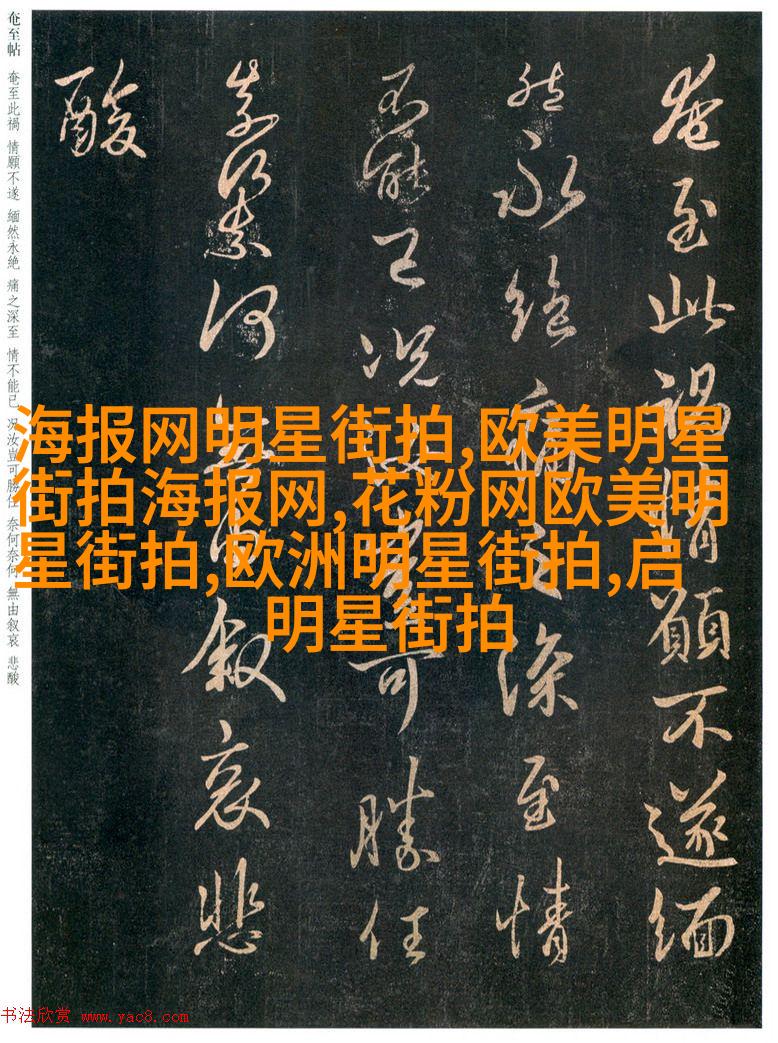 奄至帖 奄至此禍 情願不遂 緬然永絶 痛之深至 情不能已 况汝豈可勝任 奈何奈何 無由叙哀 悲酸
奄至此禍情願不遂緬
然永絶痛之深至情
不能已况汝豈可勝任
奈何奈何無由叙哀悲
酸
海报网明星街拍,欧美明星
街拍海报网,花粉网欧美明
星街拍,欧洲明星街拍,启
明星街拍
书法欣赏 www.yac8.com